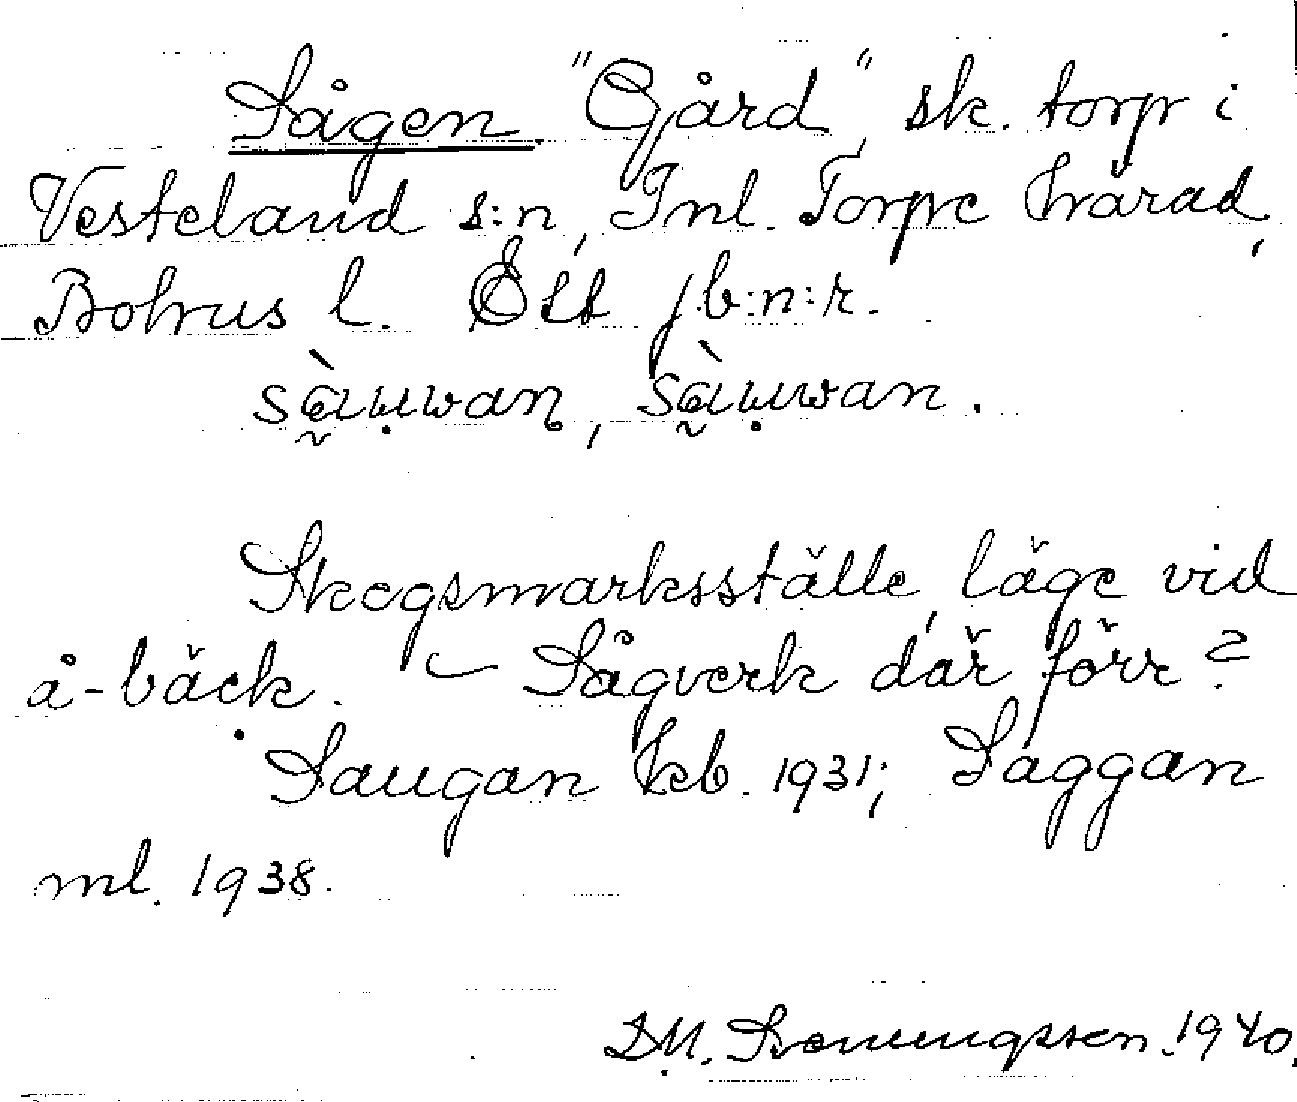 Sågen "Gård", sk. torp i
Vesteland s:n, Inl. Torpe härad,
Bohus l. Ett jb:n:r.
Skogsmarksställe, läge vid
å-bäck. – Sågverk där förr?
Saugan kb. 1931; Såggan
ml. 1938.
1940.